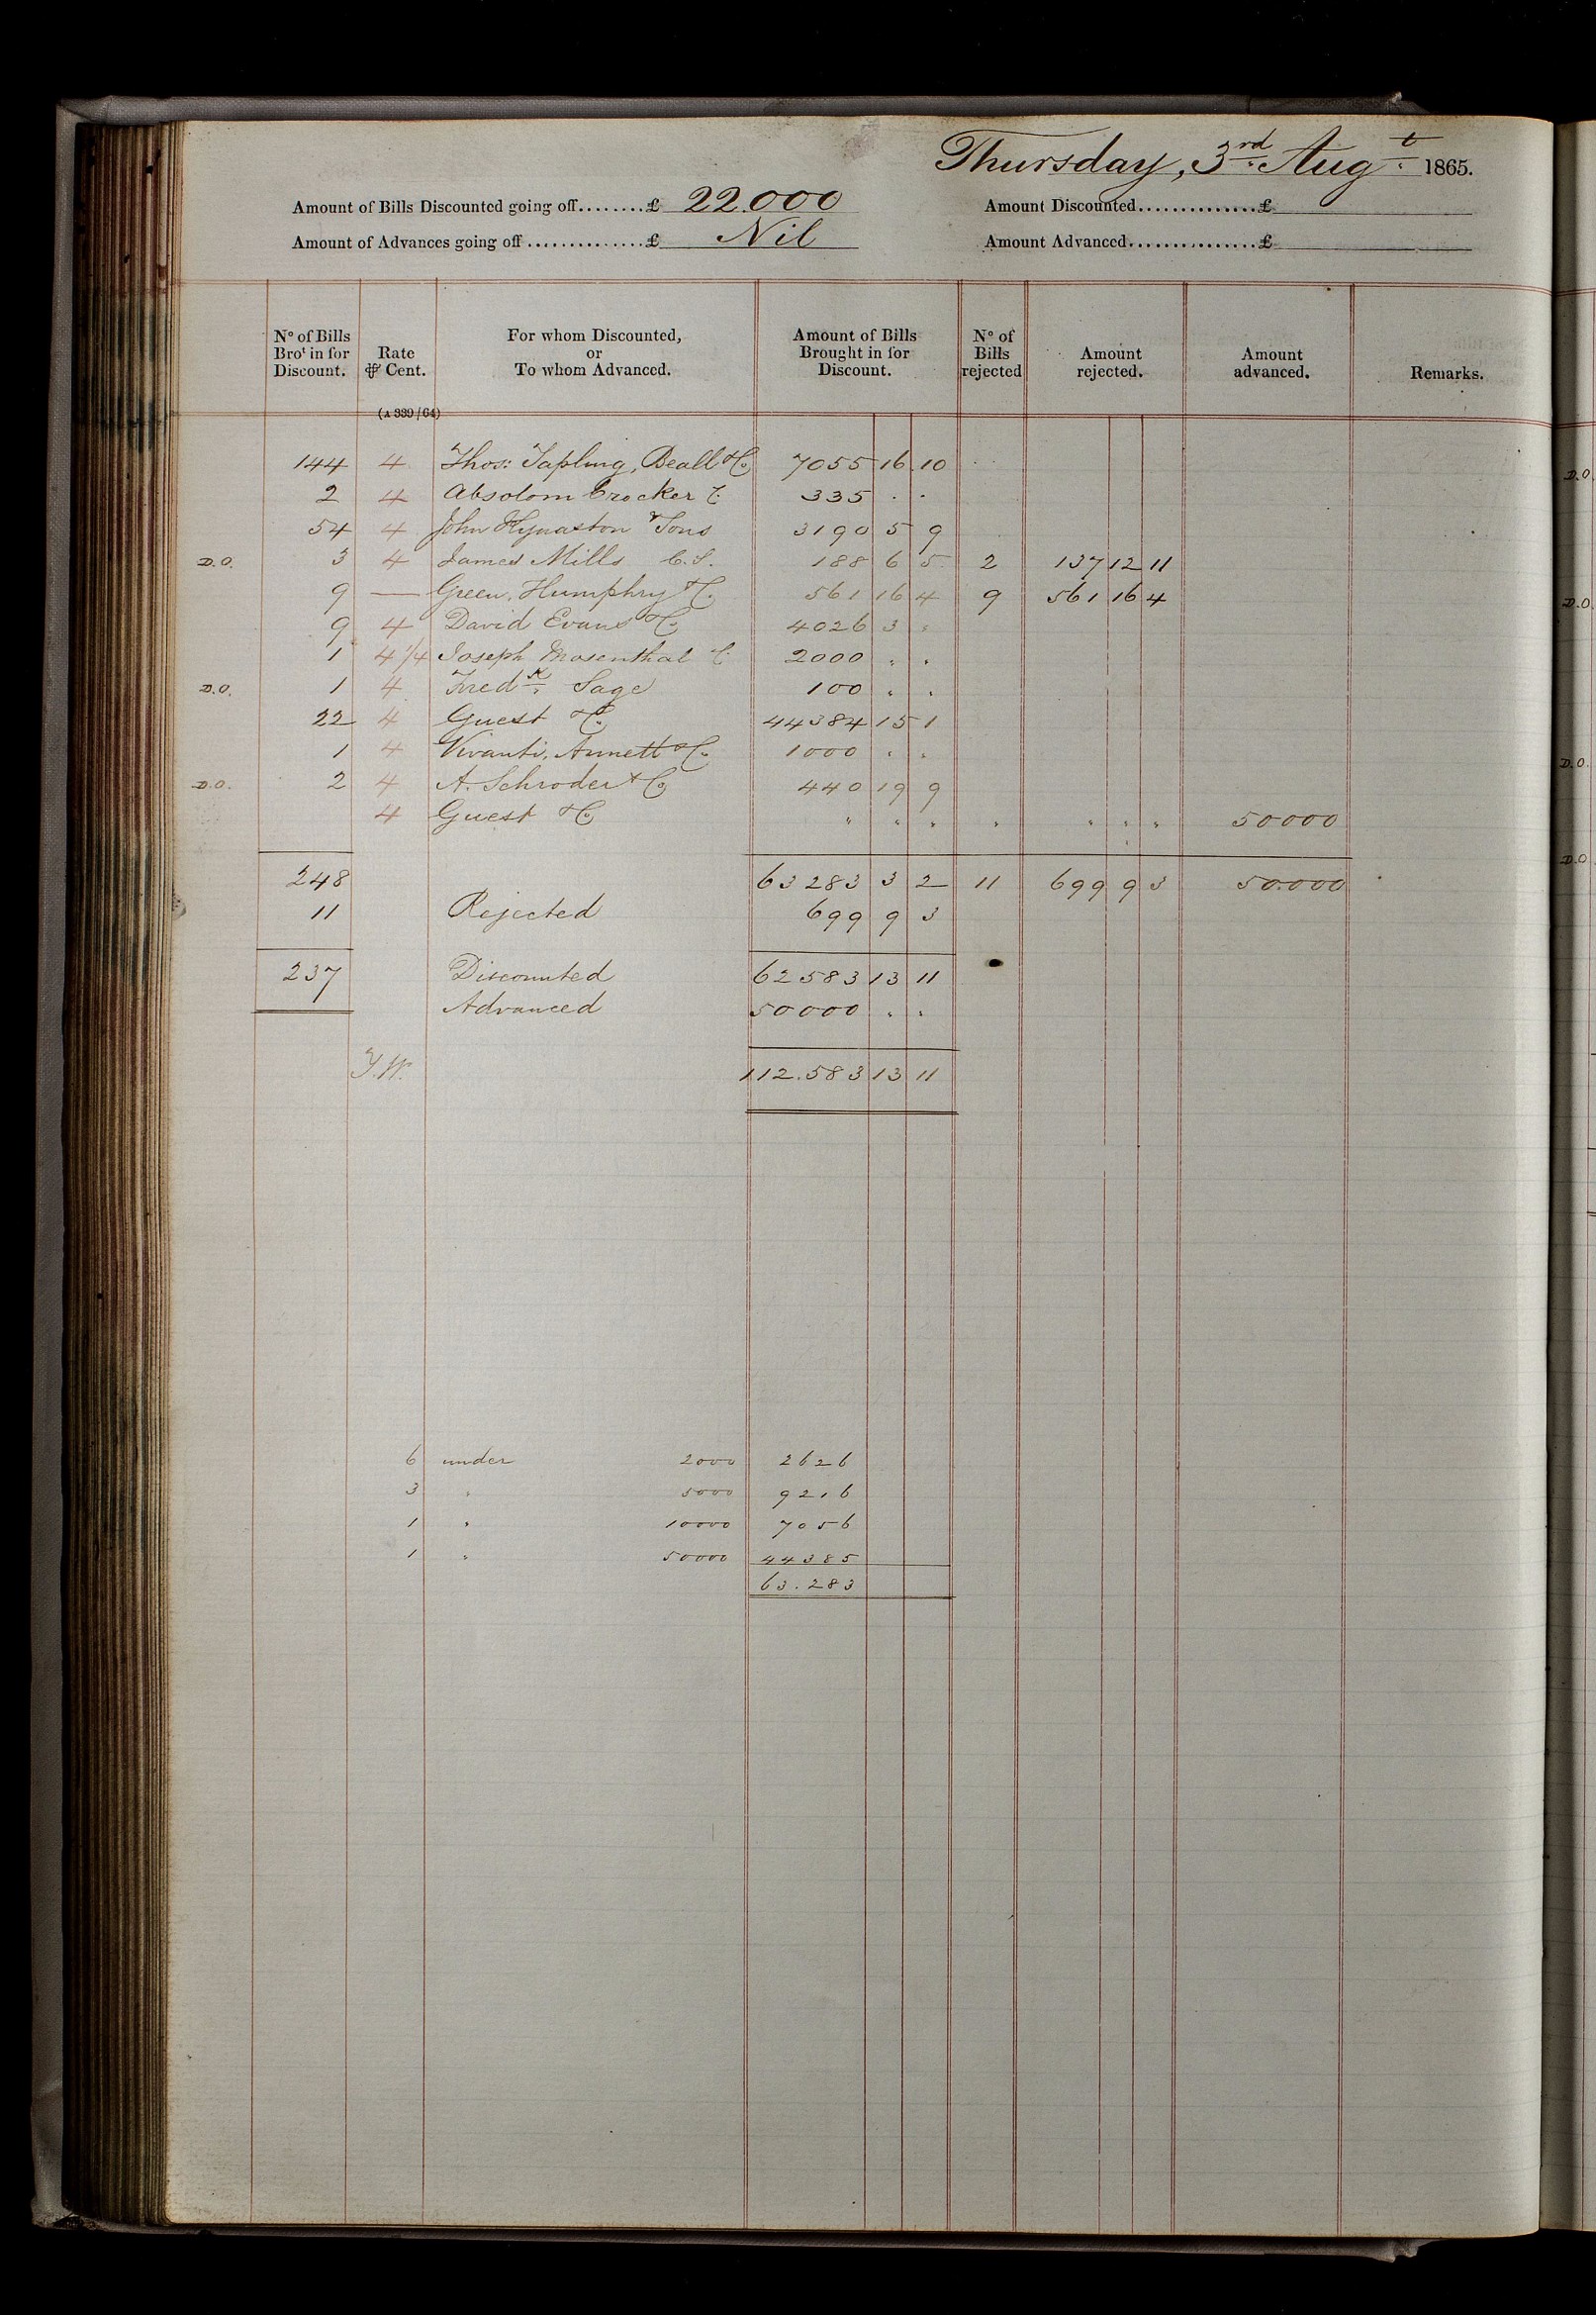 Thursday, 3rd Augt 1865.
Amount of Bills Discounted going off........£ 22.000 Amount Discounted..............£
Amount of Advances going off..............£ Nil Amount Advanced...............£
No of Bills Brot in for Discount. Rate ⅌ Cent. For whom Discounted, or To whom Advanced. Amount of Bills Brought in for Discount. No of Bills rejected Amount rejected. Amount advanced. Remarks.
(A 339/64)
144 4 Thos: Tapling, Beall & Co 7055 16 10
2 4 Absolom Crocker C. 335 . .
54 4 John Kynaston & Sons 3190 5 9
D.O. 3 4 James Mills C.S. 188 6 5 2 137 12 11
9 — Green, Humphry & Co 561 16 4 9 561 16 4
9 4 David Evans & Co 4026 3 "
1 4 1/4 Joseph Mosenthal C. 2000 " "
D.O. 1 4 Fredk. Sage 100 " "
22 4 Guest & Co 44384 15 1
1 4 Vivanti, Annett & Co 1000 " "
D.O. 2 4 A. Schroder & Co 440 19 9
4 Guest & Co " " " " " " " 50000
248 63283 3 2 11 699 9 3 50.000
11 Rejected 699 9 3
237 Discounted 62583 13 11
Advanced 50000 " "
112.583 13 11
6 under 2000 2626
3 " 5000 9216
1 " 10000 7056
1 " 50000 44385
63.283
D.O.
D.O.
D.O.
D.O